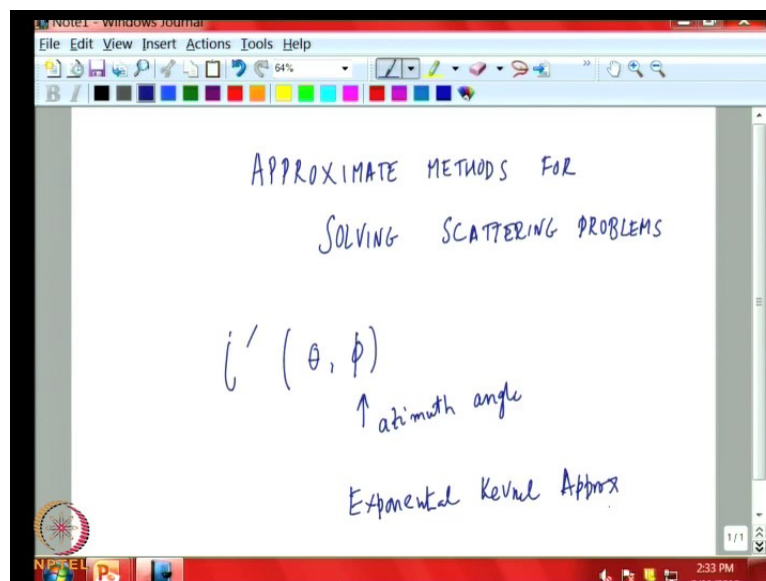 Note1 - Windows Journal
File Edit View Insert Actions Tools Help
64%
B I
APPROXIMATE METHODS FOR
SOLVING SCATTERING PROBLEMS
i′ (θ, φ)
↑ azimuth angle
Exponental Kernel Approx
1/1
NPTEL
2:33 PM